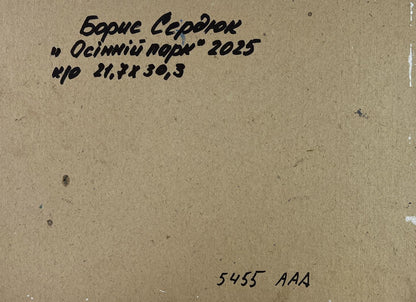 Борис Сердюк
"Осінній парк" 2025
к/о 21,7х30,3
5455 ААА